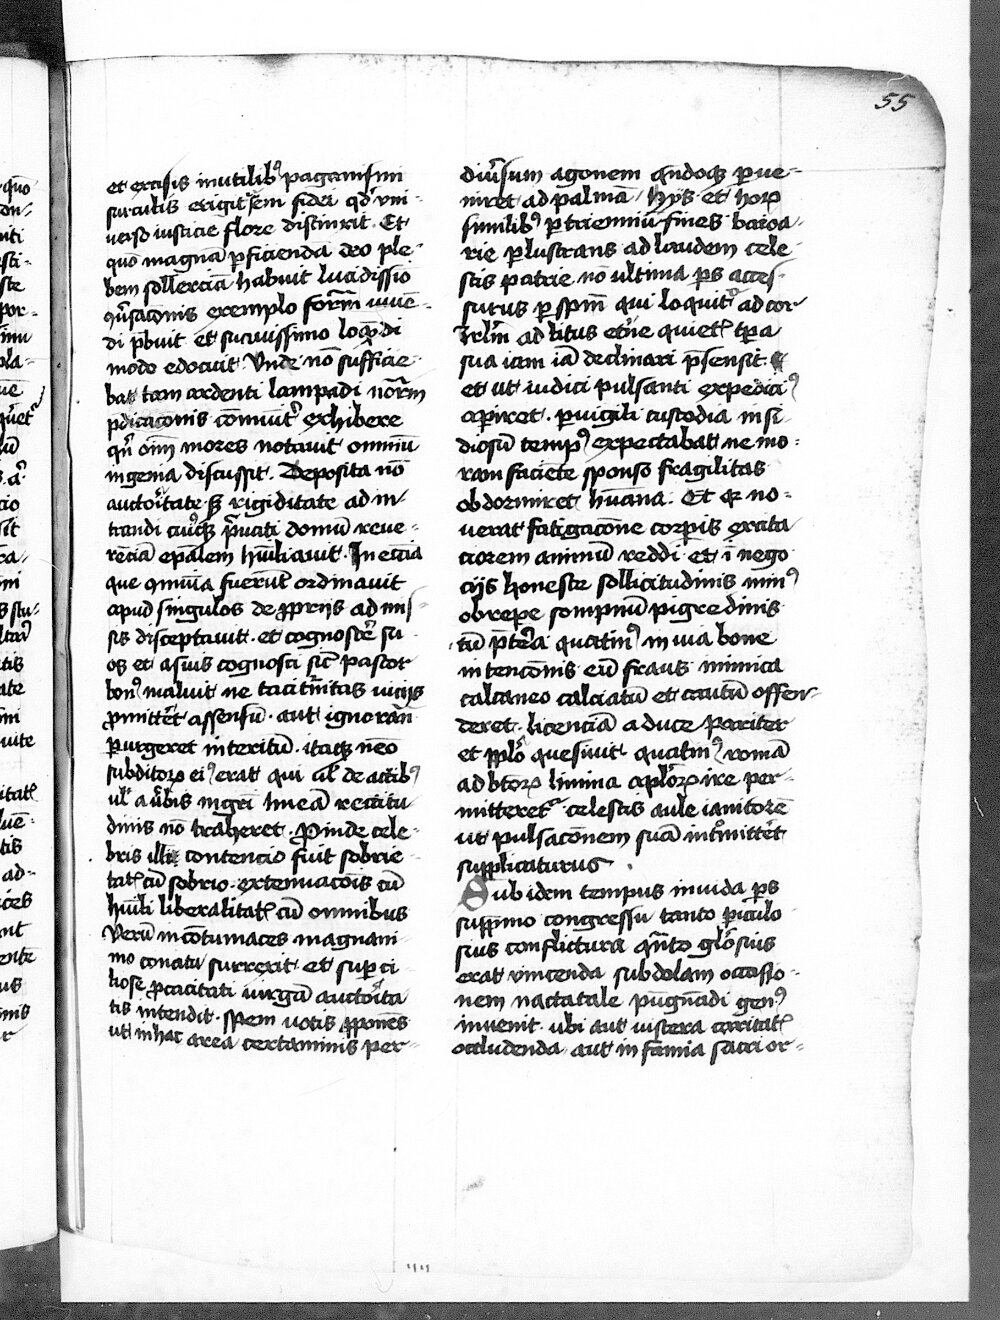 55
et excisis inutilib⁹ paganismi
surculis erigit sem fidei qd' vni-
verso iusticie flore distinxit. Et
quo magnā pficiendā deo ple-
bem sollerciā habuit lucidissio
ꝯūsac̄onis exemplo form̄ viuē-
di p̄buit et suauissimo loq̄ndi
modo edocuit. Vnde nō sufficie-
bat tam ardenti lampadi nor̄m
p̄dicac̄onis com̄it' exhibere
qn̄ om̄ mores notauit omniū
ingenia discussit. Deposita nō
auctoitate sꝫ rigiditate ad in-
trandi cuiꝰcꝫ p̄uati domū reue-
rēciā ep̄alem hūiliauit. In eccīa
que ꝯmunia fuerūt ordinauit
apud singulos de ꝓprijs admis-
sis disceptauit. et cognoscē su-
os et a suis cognosci sic̄ pastor
bonꝰ maluit ne taciturnitas vicijs
ꝓmittēt assensū. aut ignoran̄
p̄urgeret interitū. itaqꝫ nēo
subditoꝝ ei⁹ erat qui vl' de actibꝰ
vl' a v̄bis in ꝯgrā lineā rectitu-
dinis nō traheret. Proinde cele-
bris illi contencio fuit sobrie-
tat̄ cū sobrio. extenuac̄ois cū
hūili liberalitat̄ cū omnibus
Verū in cōtumaces magnani-
mo conatu surrexit et sup̄ci-
liose ꝓcacitati virgā auctoita-
tis intendit. Spem votis ꝓponēs
ut in hac area certaminis per-
diūsum agonem qn̄doqꝫ pue-
niret ad palmā. hijs et hoꝝ
similib⁹ p trienniū fines baioa-
rie plustrans ad laudem cele-
stis patrie nō ultima ps acces-
surus p spm̄ qui loquit' ad cor
Irl̄m ad litus etn̄e quiet̄ tp̄a
sua iam iā declinari p̄sensit.
et ut iudici pulsanti expedici⁹
apiret. puigili custodia insi-
diosū temp⁹ expectabat ne mo-
ram faciēte sponso fragilitas
obdormiret hūana. Et qꝛ no-
uerat fatigac̄one corpis excita-
ciorem animū reddi et ī nego-
cijs honeste sollicitudinis min⁹
obrepe sompnū pigredinis
tū p̄t̄ea quatin⁹ in via bone
intenc̄onis eū fraus inimica
calcaneo calciatū et cautū offen-
deret. licenciā a duce pariter
et pplō quesiuit. quatin⁹ romā
ad b̄toꝝ limina aplōꝝ ire per-
mitteret'. celestis aule ianitorē
ut pulsac̄onem suā intᵒmittēt
supplicaturus.
Sub idem tempus inuida ps
supp̄mo congressu tanto p̄iculo-
sius conflictura qn̄to glōsius
erat vincenda subdolam occasio-
nem nacta tale pūgnādi gen⁹
inuenit. vbi aut viscera caritat̄
occludenda. aut infamia sacri or-